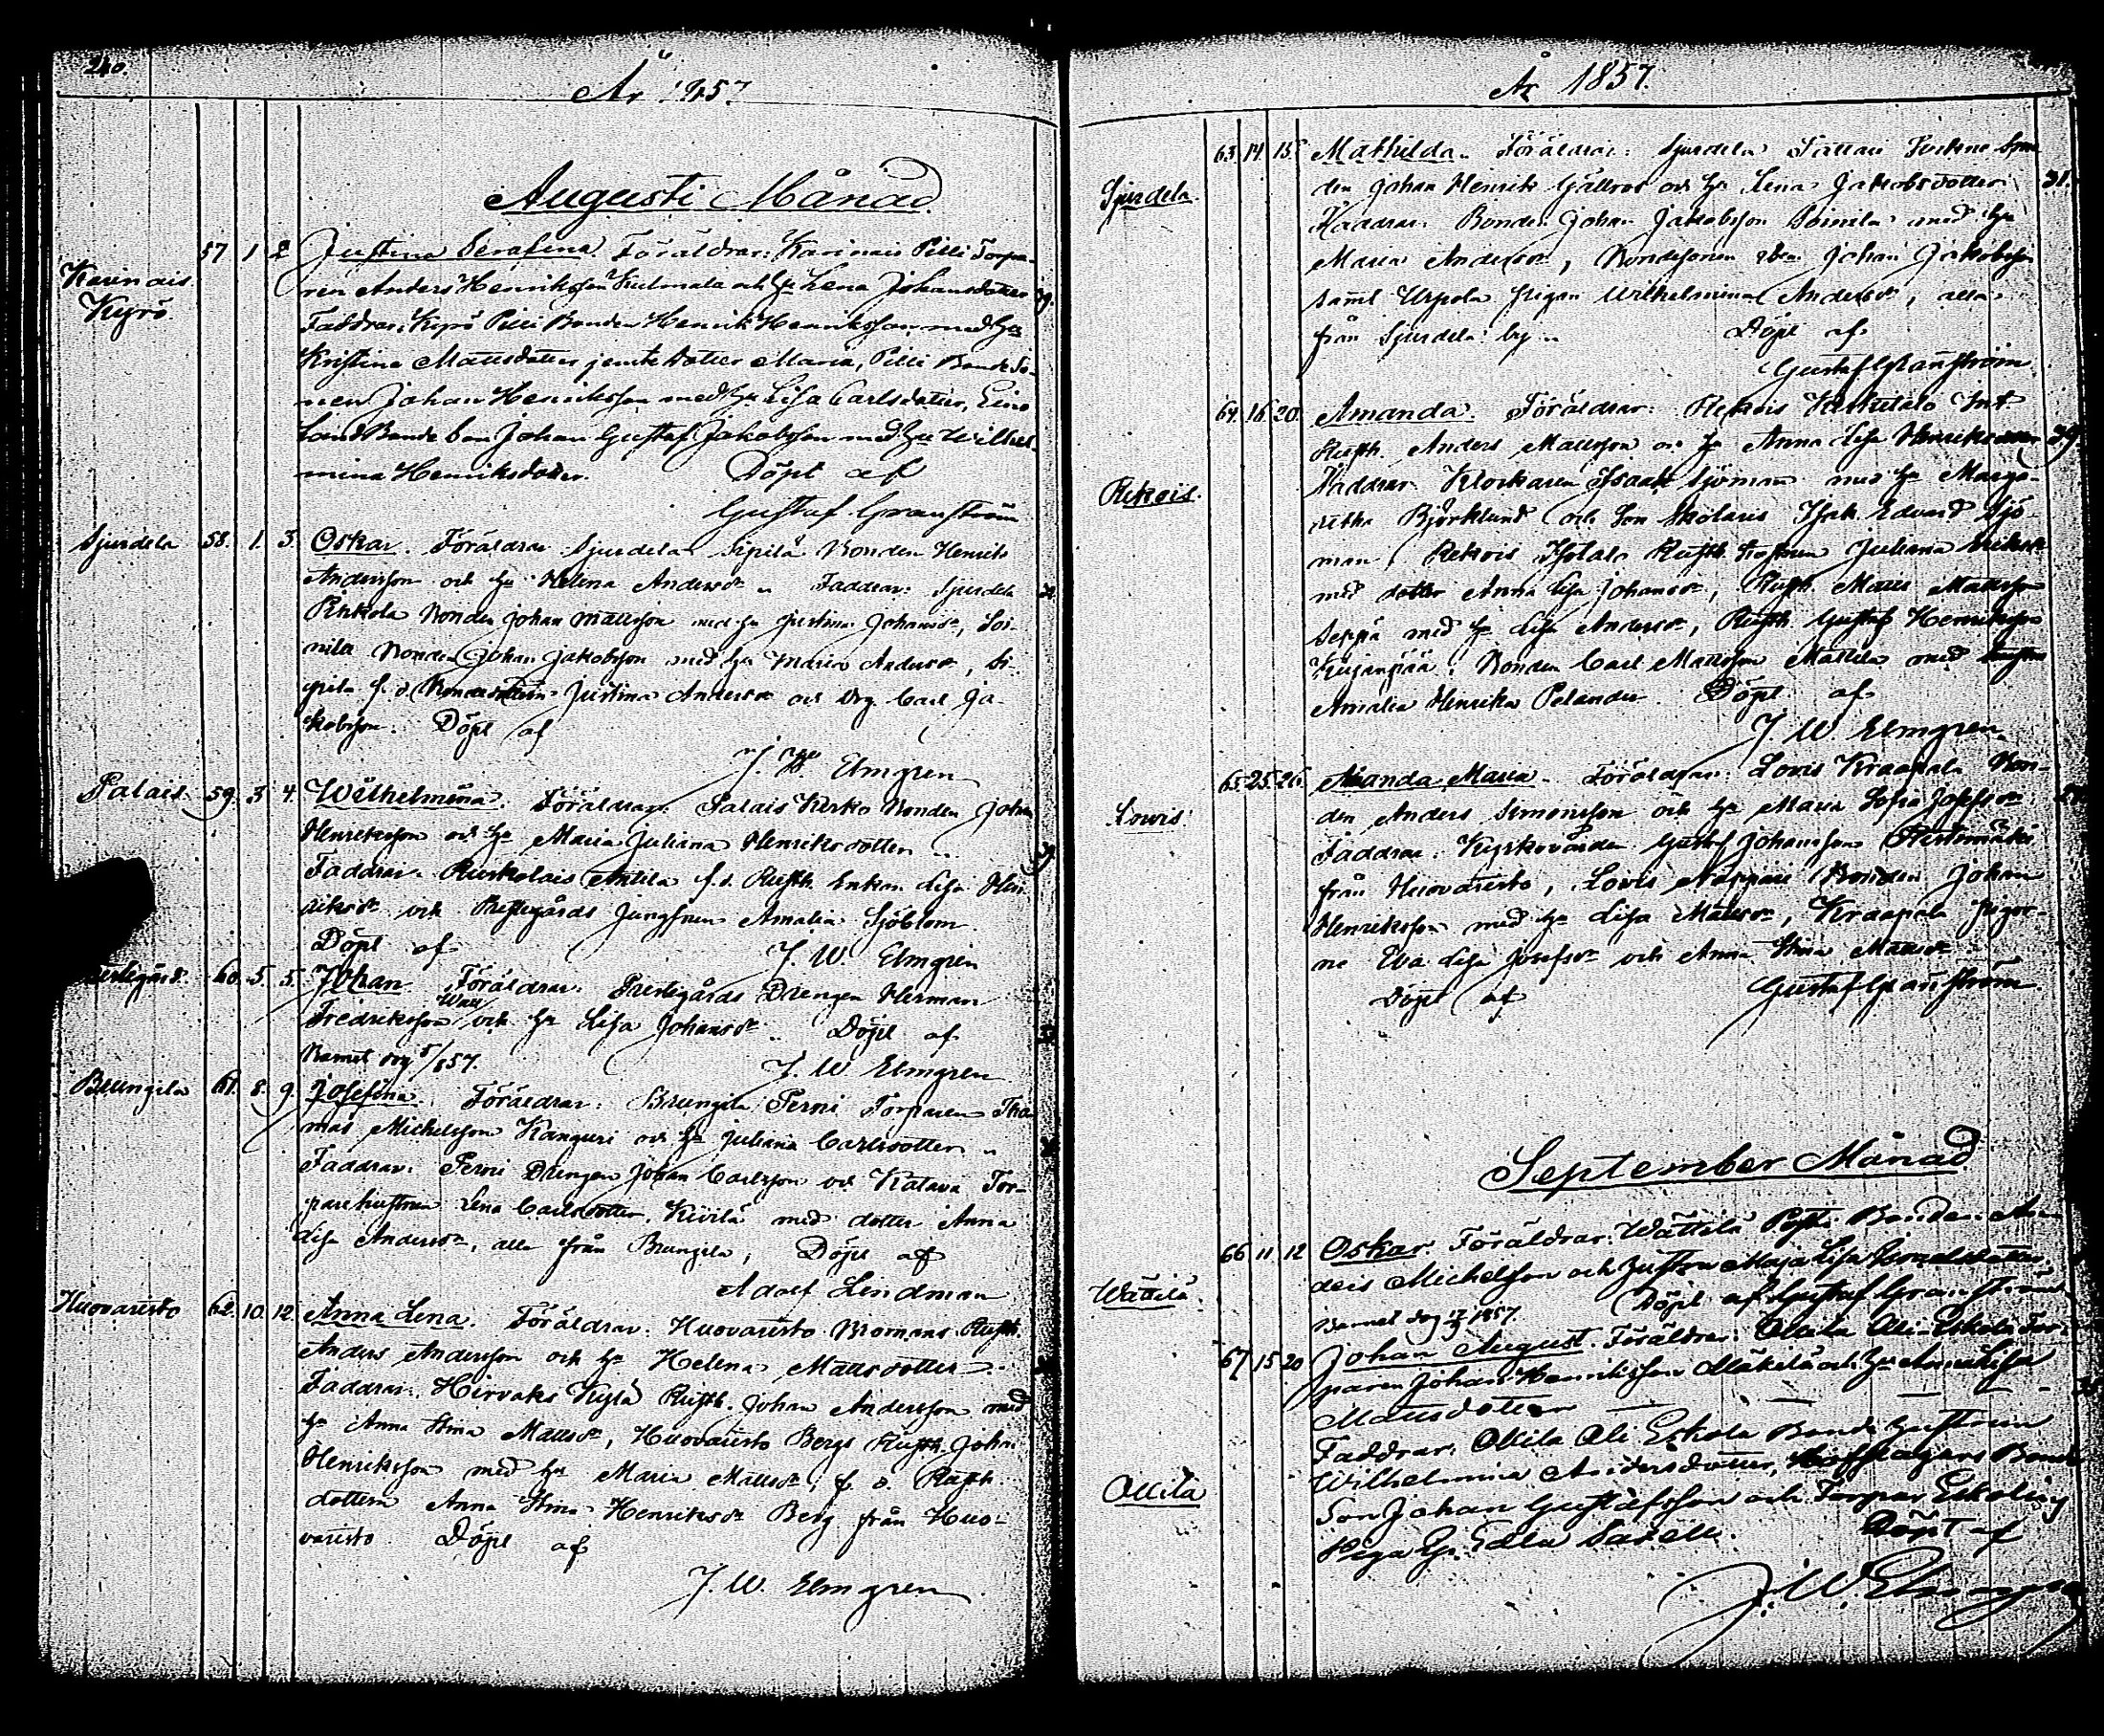 240.
År 1857
Augusti Månad
Karinais
Kyrö
57 1 2 Justina Serafina. Föräldrar: Karinais Pilli Torpa-
ren Anders Henriksson Kulmala och Hu Lena Johansdotter
Faddrar: Kyrö Pilli Bonden Henrik Henriksson med Hu
Kristina Mattsdotter jemte dotter Maria, Pilli Bonde So-
nen Johan Henriksson med Hu Lisa Carlsdotter, Eino
Land Bonde Johan Gustaf Jakobsson med Hu Wilhel-
mina Henriksdotter. Döpt af
Gustaf Granström
Sjurdela 58. 1. 3. Oskar. Föräldrar Sjurdela Sipilä Bonden Henrik
Andersson och Hu Helena Andersdr. Faddrar: Sjurdela
Pirkola Bonden Johan Mattsson med Hu Justina Johansdr, Soi-
nila Bonden Johan Jakobsson med Hu Maria Andersdr, Si-
pilä f. d. Justina Andersdr och Drg. Carl Ja-
kobsson. Döpt af
J. W. Elmgren
Palais. 59. 3 4. Wilhelmina. Föräldrar: Palais Kirko Bonden Johan
Henriksson och Hu Maria Juliana Henriksdotter.
Faddrar: Anttila f. d. Rusth. Enkan Lisa Hen-
riksdr och Prestgårds Jungfrun Amalia Sjöblom
Döpt af J. W Elmgren
60. 5. 5. Johan Föräldrar: Prestegårds Drengen Herman
Fredriksson Wall och Hu Lisa Johansdr. Döpt af
Barnet dog 5/8 57. J. W Elmgren
Brungila 61. 8. 9. Josefina. Föräldrar: Brungila Perni Torparen Tho-
mas Michelsson Kanguri och Hu Juliana Carlsdotter.
Faddrar: Perni Drengen Johan Carlsson och Katava Tor-
parehustrun Lena Carlsdotter, Kivilä med dotter Anna
Lisa Andersdr, alla från Brungila, Döpt af
Adolf Lindman
Huovaristo 62. 10. 12. Anna Lena. Föräldrar: Huovaristo Bromans Rusth.
Anders Andersson och Hu Helena Mattsdotter.
Faddrar: Hirvaks Kylä Rusth. Johan Andersson med
Hu Anna Stina Mattsdr, Huovaristo Bergs Rusth. Johan
Henriksson med Hu Maria Mattsdr, f. d. Rusth.
dottern Anna Stina Henriksdr Berg från Huo-
varisto. Döpt af
J. W. Elmgren
År 1857.
Sjurdela. 63. 14. 15. Mathilda. Föräldrar: Sjurdela
Johan Henrik Gällros och Hu Lena Jakobsdotter 31.
Faddrar: Bonden Johan Jakobsson Soinila med Hu
Maria Andersdr, Bondesonen Johan Jakobsson
samt Uspola pigan Wilhelmina Andersdr, alla
från Sjurdela by. Döpt af
Gustaf Granström
Rekois. 64. 16. 20. Amanda. Föräldrar: Rekois
Rusth. Anders Mattsson och Hu Anna Lisa Henriksdotter 39
Faddrar: Klockaren Isaak Sjöman med Hu Marga-
retha Björklund och Son Skolaris Isak Edvard Sjö-
man, Rekois Isotalo Rusth. hustrun Juliana
med dotter Anna Lisa Johansdr, Rusth. Matts Mattsson
Seppä med Hu Lisa Andersdr, Rusth Gustaf Henriksson
Kujanpää, Bonden Carl Mattsson Mattila med
Amalia Henrika Polander. Döpt af
J W Elmgren.
Lowis. 65. 25. 26. Amanda Maria. Föräldrar: Lovis Kraapala Bon-
den Anders Simonsson och Hu Maria Sofia Josefsdr.
Faddrar: Kyrkovärden Gustaf Johansson
från Huovaristo, Lovis Bonden Johan
Henriksson med Hu Lisa Mattsdr, Kraapala pigor-
na Eva Lisa Josefsdr och Anna Stina Mattsdr.
Döpt af Gustaf Granström.
September Månad
Wättilä. 66 11 12 Oskar. Föräldrar: Wättilä Bonden An-
ders Michelsson och hustru Maja Lisa
Barnet dog 17/9 1857. Döpt af Gustaf Granström
Ollila 67 15 20 Johan August. Föräldrar: Ollila Ali-Eskola Tor-
paren Johan Henriksson Mäkilä och Hu Anna Lisa
Mattsdotter
Faddrar: Ollila Ali Eskola Bonde hustrun
Wilhelmina Andersdotter, Bonde
Son Johan Gustafsson och Torpar
Piga Edla Saxell. Döpt af
J. W. Elmgren